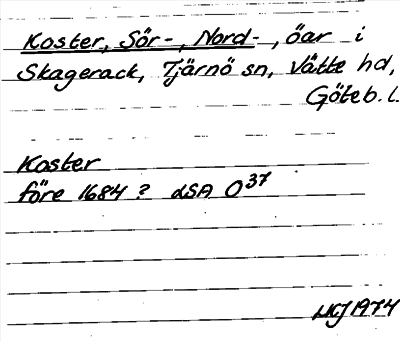 Koster, Sör-, Nord-, öar i
Skagerack, Tjärnö sn, Vätte hd,
Göteb. l.
Koster
före 1684? LSA O37
1974